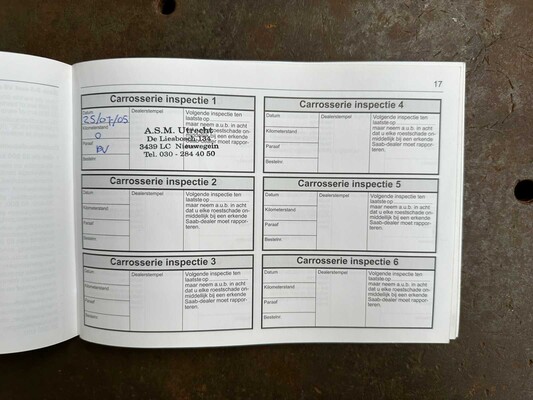 17
Carrosserie inspectie 1
Datum
25/07/05
Kilometerstand
0
Paraaf
Bestelnr.
Dealerstempel
A.S.M. Utrecht
De Liesbosch 134
3439 LC Nieuwegein
Tel. 030 - 284 40 50
Volgende inspectie ten
laatste op
maar neem a.u.b. in acht
dat u elke roestschade on-
middellijk bij een erkende
Saab-dealer moet rappor-
teren.
Carrosserie inspectie 2
Datum
Kilometerstand
Paraaf
Bestelnr.
Dealerstempel
Volgende inspectie ten
laatste op
maar neem a.u.b. in acht
dat u elke roestschade on-
middellijk bij een erkende
Saab-dealer moet rappor-
teren.
Carrosserie inspectie 3
Datum
Kilometerstand
Paraaf
Bestelnr.
Dealerstempel
Volgende inspectie ten
laatste op
maar neem a.u.b. in acht
dat u elke roestschade on-
middellijk bij een erkende
Saab-dealer moet rappor-
teren.
Carrosserie inspectie 4
Datum
Kilometerstand
Paraaf
Bestelnr.
Dealerstempel
Volgende inspectie ten
laatste op
maar neem a.u.b. in acht
dat u elke roestschade on-
middellijk bij een erkende
Saab-dealer moet rappor-
teren.
Carrosserie inspectie 5
Datum
Kilometerstand
Paraaf
Bestelnr.
Dealerstempel
Volgende inspectie ten
laatste op
maar neem a.u.b. in acht
dat u elke roestschade on-
middellijk bij een erkende
Saab-dealer moet rappor-
teren.
Carrosserie inspectie 6
Datum
Kilometerstand
Paraaf
Bestelnr.
Dealerstempel
Volgende inspectie ten
laatste op
maar neem a.u.b. in acht
dat u elke roestschade on-
middellijk bij een erkende
Saab-dealer moet rappor-
teren.